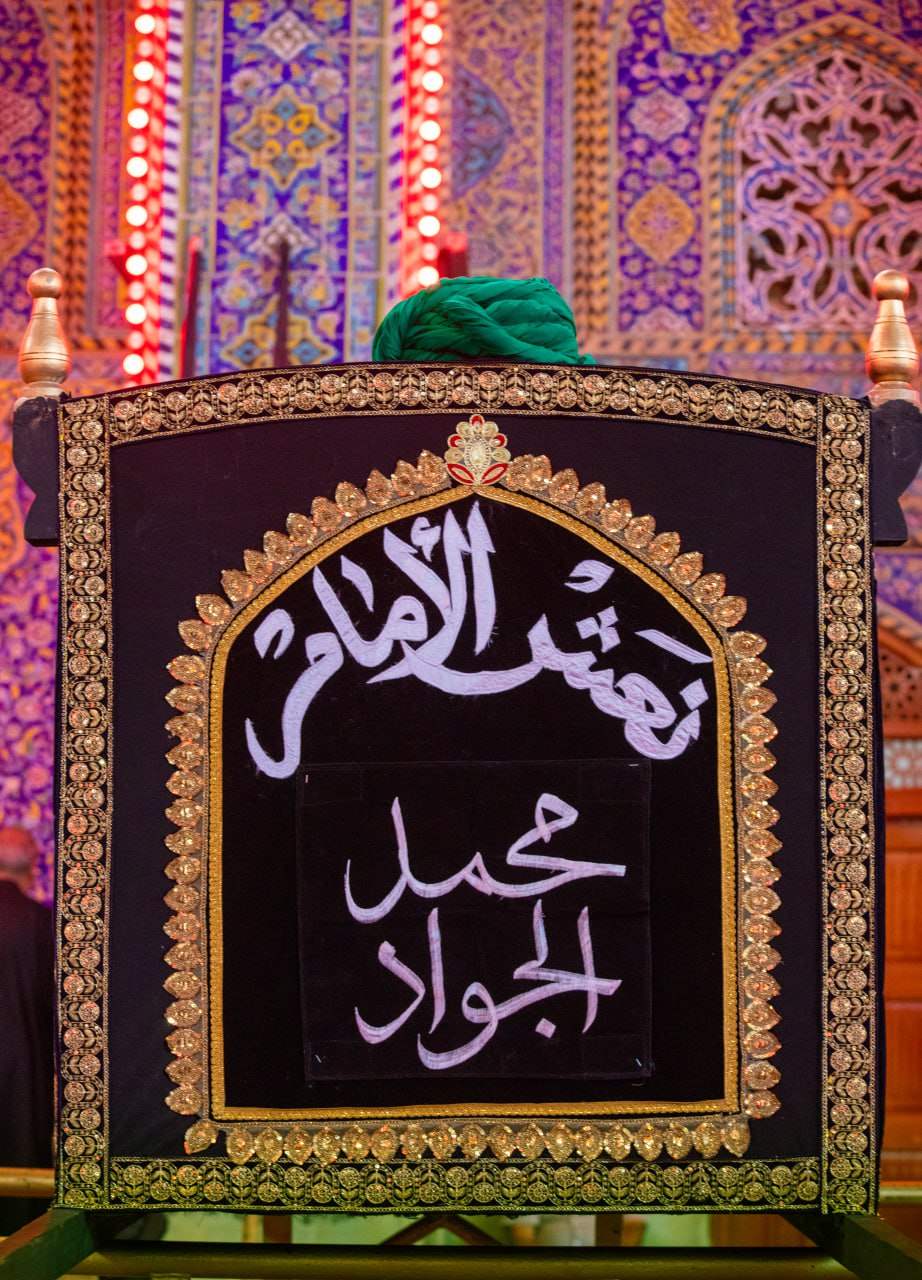 نعش الأمام
محمد
الجواد